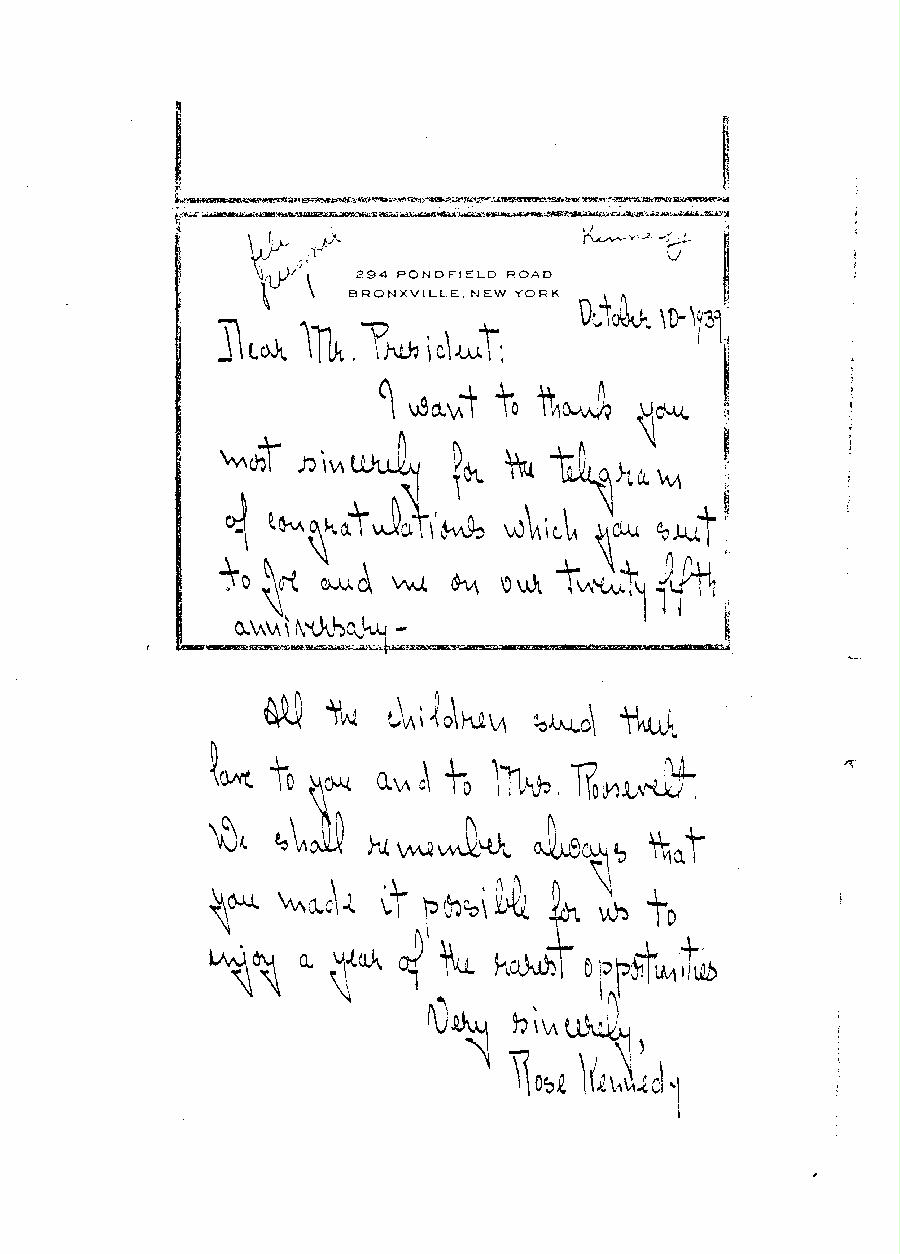 file
personal
Kennedy
294 PONDFIELD ROAD
BRONXVILLE, NEW YORK
October 10-1939
Dear Mr. President:
I want to thank you
most sincerely for the telegram
of congratulations which you sent
to Joe and me on our twenty fifth
anniversary-
All the children send their
love to you and to Mrs. Roosevelt.
We shall remember always that
you made it possible for us to
enjoy a year of the rarest opportunities
Very sincerely,
Rose Kennedy